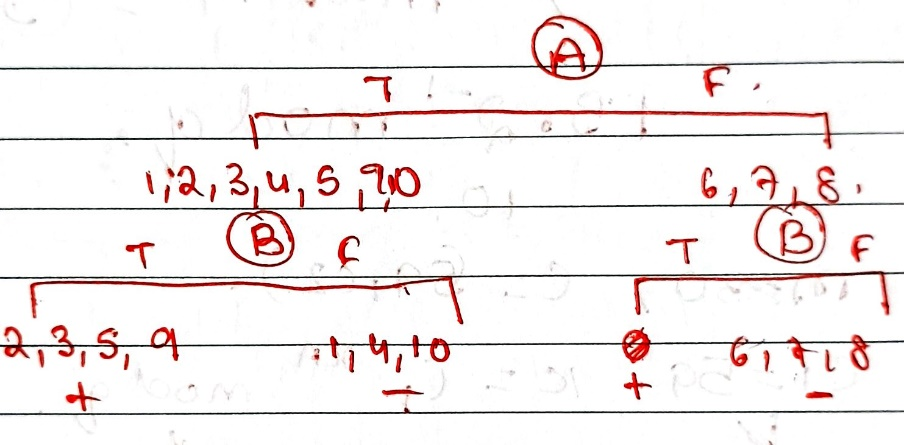 A
T F.
1,2,3,4,5,9,10 6,7,8.
T B F T B F
2,3,5,9 1,4,10 6,7,8
+ - + -